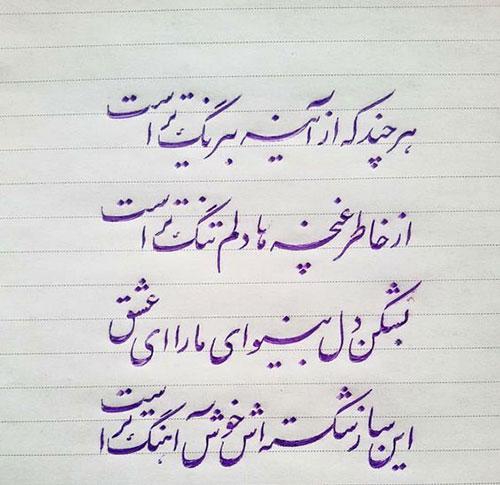 هر چند که از آینه بی‌رنگ‌تر است
از خاطر غنچه‌ها دلم تنگ‌تر است
بشکن دل بینوای ما را ای عشق
این ساز شکسته‌اش خوش‌آهنگ‌تر است